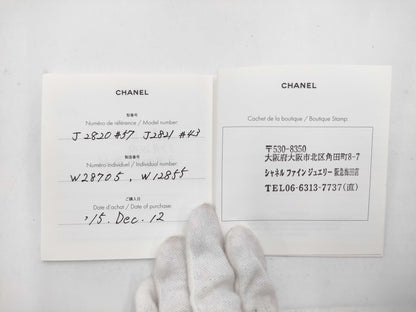 CHANEL
型番号
Numéro de référence / Model number:
J2820 #57 J2821 #43
製造番号
Numéro individuel / Individual number:
W28705, W12855
ご購入日
Date d'achat / Date of purchase:
'15. Dec. 12
CHANEL
Cachet de la boutique / Boutique Stamp:
〒530-8350
大阪府大阪市北区角田町8-7
シャネル ファイン ジュエリー 阪急梅田店
TEL06-6313-7737(直)